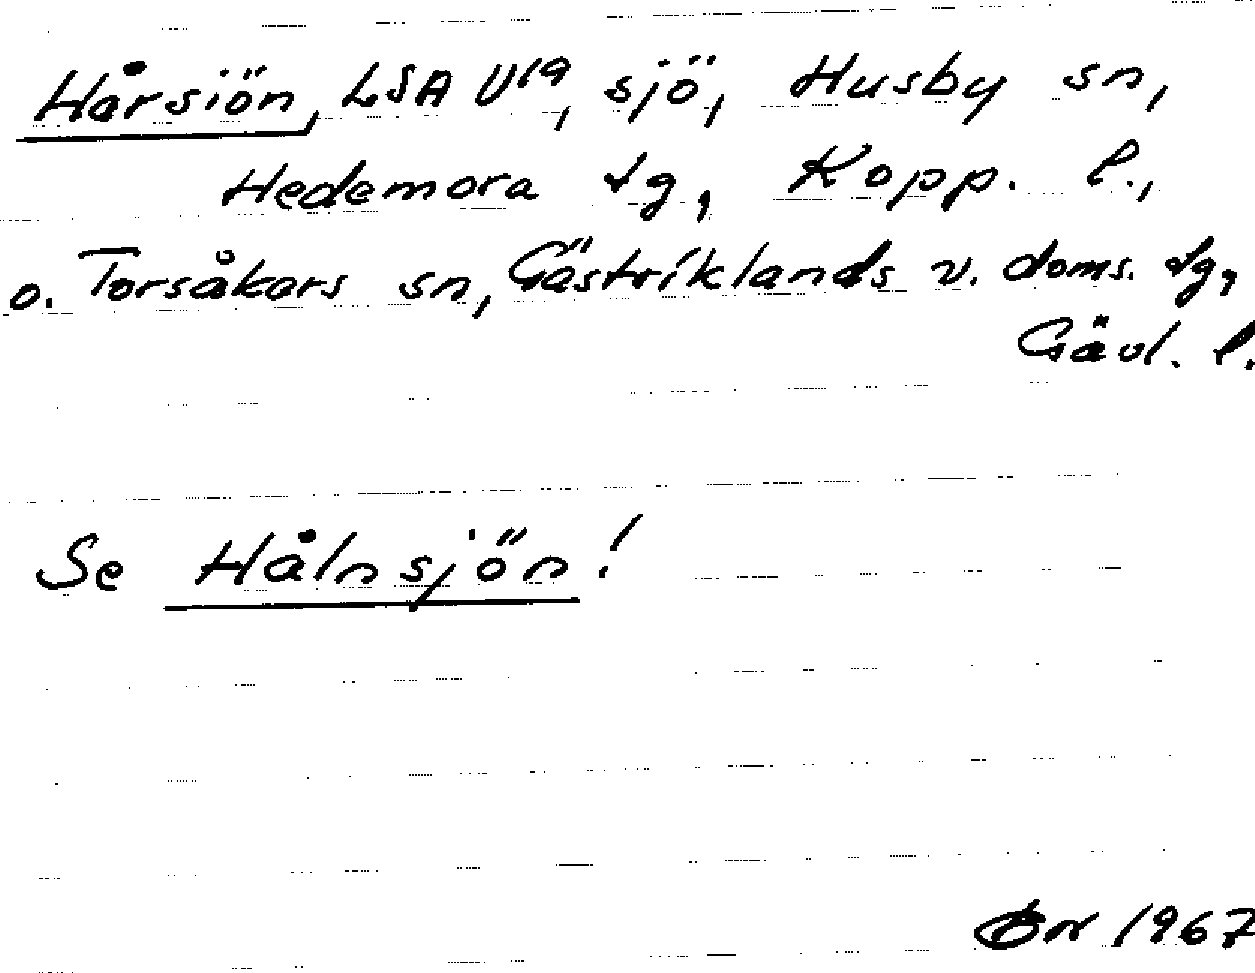 Hårsiön, LSA U19, sjö, Husby sn,
Hedemora tg, Kopp. l.,
o. Torsåkers sn, Gästriklands v. doms. tg,
Gävl. l.
Se Hålnsjön!
1967